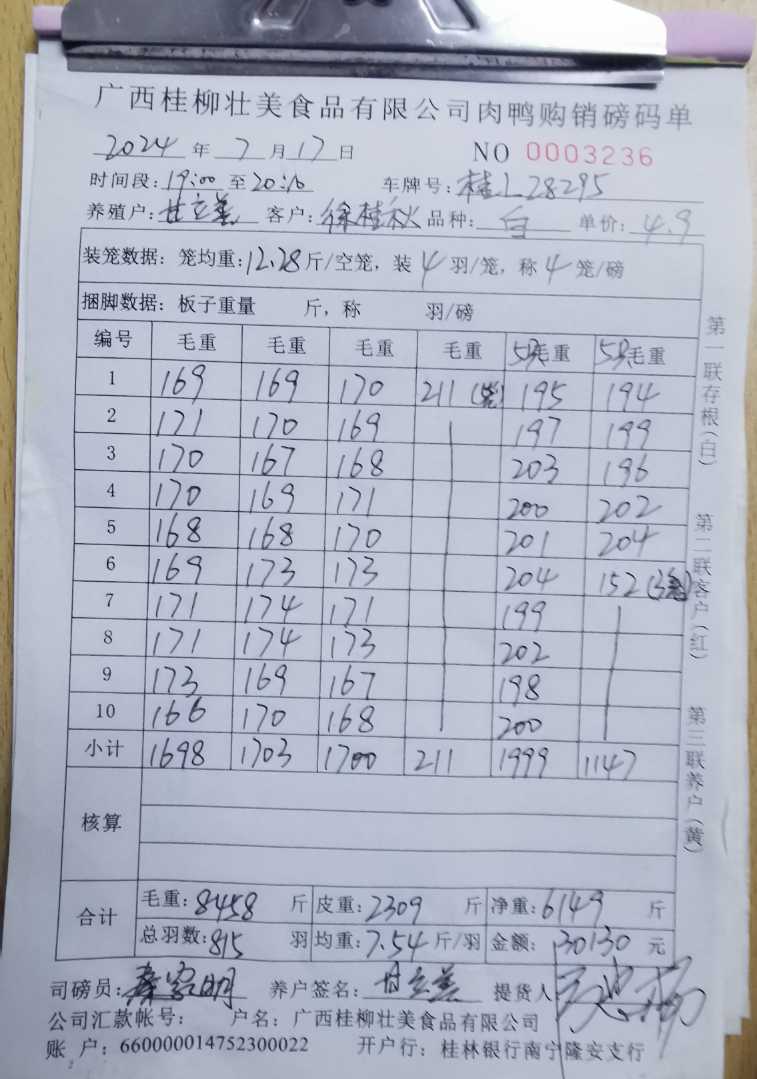 广西桂柳壮美食品有限公司肉鸭购销磅码单
2024 年 7 月 17 日 NO 0003236
时间段: 19:00 至 20:10 车牌号: 桂L28295
养殖户: 甘立姜 客户: 徐桂秋 品种: 白 单价: 4.9
装笼数据: 笼均重: 12.28 斤/空笼, 装 4 羽/笼, 称 4 笼/磅
捆脚数据: 板子重量 斤, 称 羽/磅
编号 毛重 毛重 毛重 毛重 5只毛重 5只毛重
1 169 169 170 211 195 194
2 171 170 169 197 199
3 170 167 168 203 196
4 170 169 171 200 202
5 168 168 170 201 204
6 169 173 173 204 152
7 171 174 171 199
8 171 174 173 202
9 173 169 167 198
10 166 170 168 200
小计 1698 1703 1700 211 1999 1147
核算
合计 毛重: 8458 斤 皮重: 2309 斤 净重: 6149 斤
总羽数: 815 羽 均重: 7.54 斤/羽 金额: 30130 元
司磅员: 养户签名: 提货人
公司汇款帐号: 户名: 广西桂柳壮美食品有限公司
账 户: 660000014752300022 开户行: 桂林银行南宁隆安支行
第一联存根(白)
第二联客户(红)
第三联养户(黄)